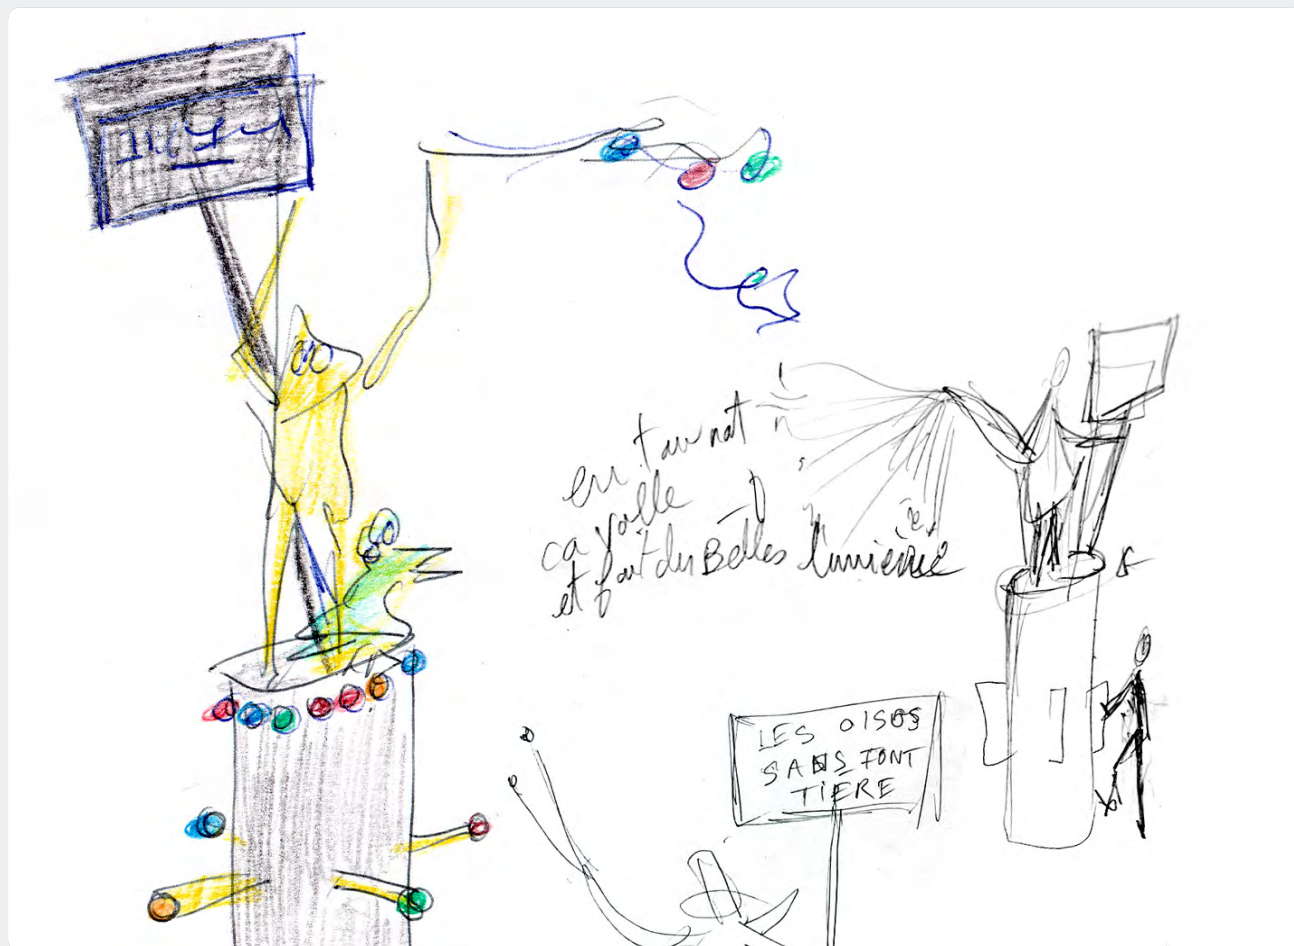 en tournat
ça volle
et fait des Belles lumière
LES OISES
SANS FONT
TIERE